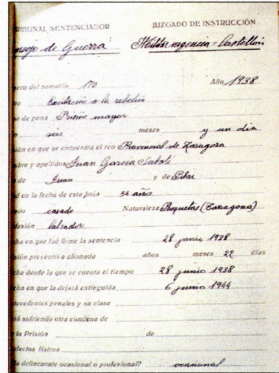 TRIBUNAL SENTENCIADOR JUZGADO DE INSTRUCCIÓN
Consejo de Guerra Militar urgencia - Castellón
número del sumario 170 Año 1938
Excitación a la rebelión
de pena Prisión mayor
seis meses y un día
en que se encuentra el reo Provincial de Zaragoza
nombre y apellidos Juan García Sabaté
de Juan y de Pilar
en la fecha de esta hoja 54 años
casado Naturaleza Roquetas (Tarragona)
labrador
en que fué firme la sentencia 28 junio 1938
prisión preventiva abonada años meses 22 días
desde la que se cuenta el tiempo 28 junio 1938
en que la dejará extinguida 6 junio 1944
antecedentes penales y su clase
sufriendo otra condena de
la Prisión de
defectos físicos
delincuente ocasional o profesional? ocasional